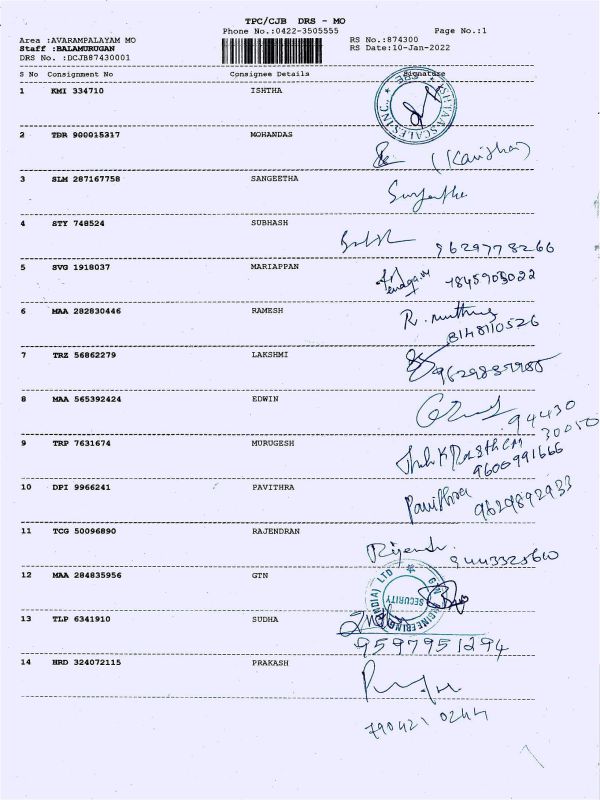 TPC/CJB DRS - MO
Phone No.:0422-3505555 Page No.:1
Area :AVARAMPALAYAM MO RS No.:874300
Staff :BALAMURUGAN RS Date:10-Jan-2022
DRS No. :DCJB87430001
S No Consignment No Consignee Details Signature
1 KMI 334710 ISHTHA
2 TDR 900015317 MOHANDAS
(Kavitha)
3 SLM 287167758 SANGEETHA
4 STY 748524 SUBHASH
9629778266
5 SVG 1918037 MARIAPPAN
7845905022
6 MAA 282830446 RAMESH
R. muthu
8148110526
7 TRZ 56862279 LAKSHMI
8 MAA 565392424 EDWIN
94430
30050
9 TRP 7631674 MURUGESH
9600991666
10 DPI 9966241 PAVITHRA
Pavithra 9629892933
11 TCG 50096890 RAJENDRAN
9443325610
12 MAA 284835956 GTN
SECURITY
13 TLP 6341910 SUDHA
9597951294
14 HRD 324072115 PRAKASH
790421 0244